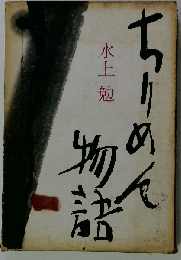 ちりめん
物語
水上 勉